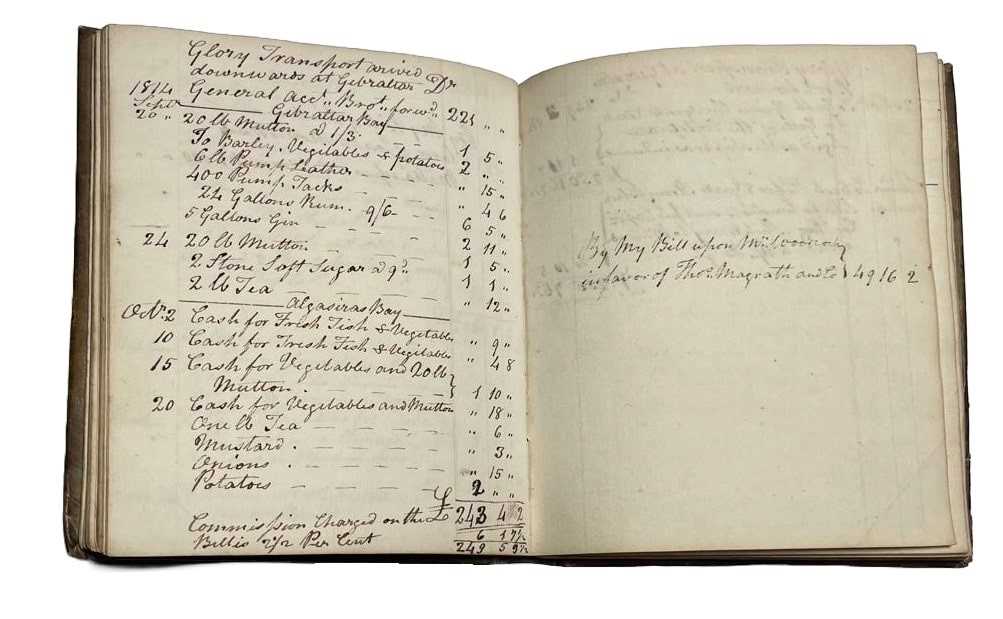 Glory Transport arived
downwards at Gibraltar Dr
1814 General acct. Brot. forwd. 221 " "
Septr Gibraltar Bay
20 " 20 lb Mutton a 1/3. 1 5 "
To Barley, Vegitables & potatoes 2 " "
6 lb Pump Leather " 15 "
400 Pump Tacks " 4 6
24 Gallons Rum. 9/6 6 5 "
5 Gallons Gin 2 11 "
24 20 lb Mutton 1 5 "
2 Stone Soft Sugar a 9d 1 1 "
2 lb Tea " 12 "
Algasiras Bay
Octr. 2 Cash for Fresh Fish & Vegitables " 9 "
10 Cash for Fresh Fish & Vegitables " 4 8
15 Cash for Vegitables and 20 lb
Mutton . 1 10 "
20 Cash for Vegitables and Mutton " 18 "
One lb Tea " 6 "
Mustard . " 3 "
Onions . " 15 "
Potatoes 2 " "
£ 243 4 2
Commission Charged on the
Bill is 2 1/2 Per Cent 6 1 7 1/2
249 5 9 1/2
By My Bill upon
in favor of Thos. Magrath and Co 49 16 2